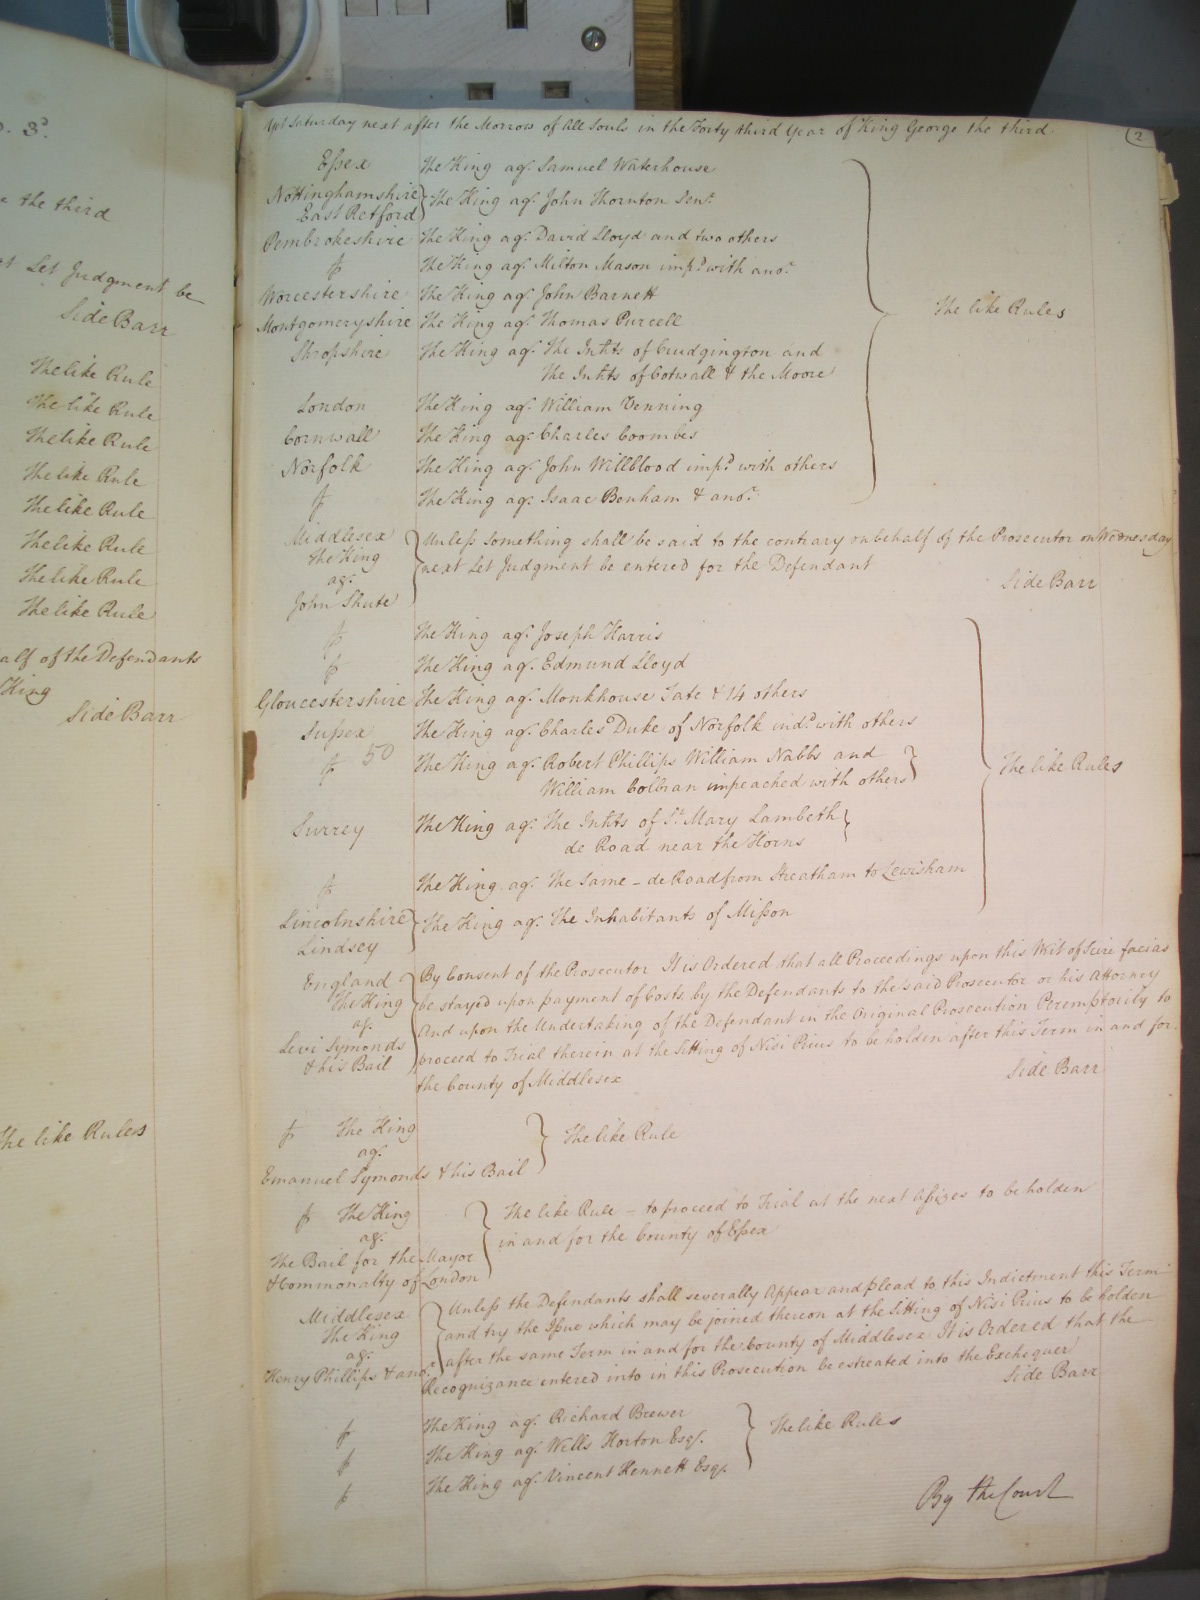 D. 3d.
e the third
Let Judgment be
Side Barr
The like Rule
The like Rule
The like Rule
The like Rule
The like Rule
The like Rule
The like Rule
The like Rule
alf of the Defendants
King
Side Barr
The like Rules
Yet Saturday next after the Morrow of All Souls in the Forty third Year of King George the third
2
Essex The King agt. Samuel Waterhouse
Nottinghamshire The King agt. John Thornton Senr.
East Retford
Pembrokeshire The King agt. David Lloyd and two others
The King agt. Milton Mason impd. with anor.
Worcestershire The King agt. John Barnett
Montgomeryshire The King agt. Thomas Purcell
The like Rules
Shropshire The King agt. The Inhts of Crudgington and
The Inhts of Cotwall & the Moore
London The King agt. William Venning
Cornwall The King agt. Charles Coombes
Norfolk The King agt. John Willblood impd. with others
The King agt. Isaac Benham & anor.
Middlesex Unless something shall be said to the contrary on behalf of the Prosecutor on Wednesday
The King next Let Judgment be entered for the Defendant
agt. Side Barr
John Shute
The King agt. Joseph Harris
The King agt. Edmund Lloyd
Gloucestershire The King agt. Monkhouse Tate & 14 others
Sussex The King agt. Charles Duke of Norfolk indd. with others
50 The King agt. Robert Phillips William Nabbs and
William Colbran impeached with others
The like Rules
Surrey The King agt. The Inhts of St. Mary Lambeth
de Road near the Horns
The King agt. The Same – de Road from Streatham to Lewisham
Lincolnshire The King agt. The Inhabitants of Misson
Lindsey
England By Consent of the Prosecutor It is Ordered that all Proceedings upon this Writ of Scire facias
The King be stayed upon payment of Costs by the Defendants to the said Prosecutor or his Attorney
agt. And upon the Undertaking of the Defendant in the Original Prosecution Peremptorily to
Levi Symonds proceed to Trial therein at the Sitting of Nisi Prius to be holden after this Term in and for
& his Bail the County of Middlesex
Side Barr
The King
agt. The like Rule
Emanuel Symonds & his Bail
The King The like Rule – to proceed to Trial at the next Assizes to be holden
agt. in and for the County of Essex
The Bail for the Mayor
& Commonalty of London
Middlesex Unless the Defendants shall severally Appear and plead to this Indictment this Term
The King and try the Issue which may be joined thereon at the Sitting of Nisi Prius to be holden
agt. after the same Term in and for the County of Middlesex It is Ordered that the
Henry Phillips & anor. Recognizance entered into in this Prosecution be estreated into the Exchequer
Side Barr
The King agt. Richard Brewer
The King agt. Wells Horton Esqr. The like Rules
The King agt. Vincent Kennett Esqr.
By the Court